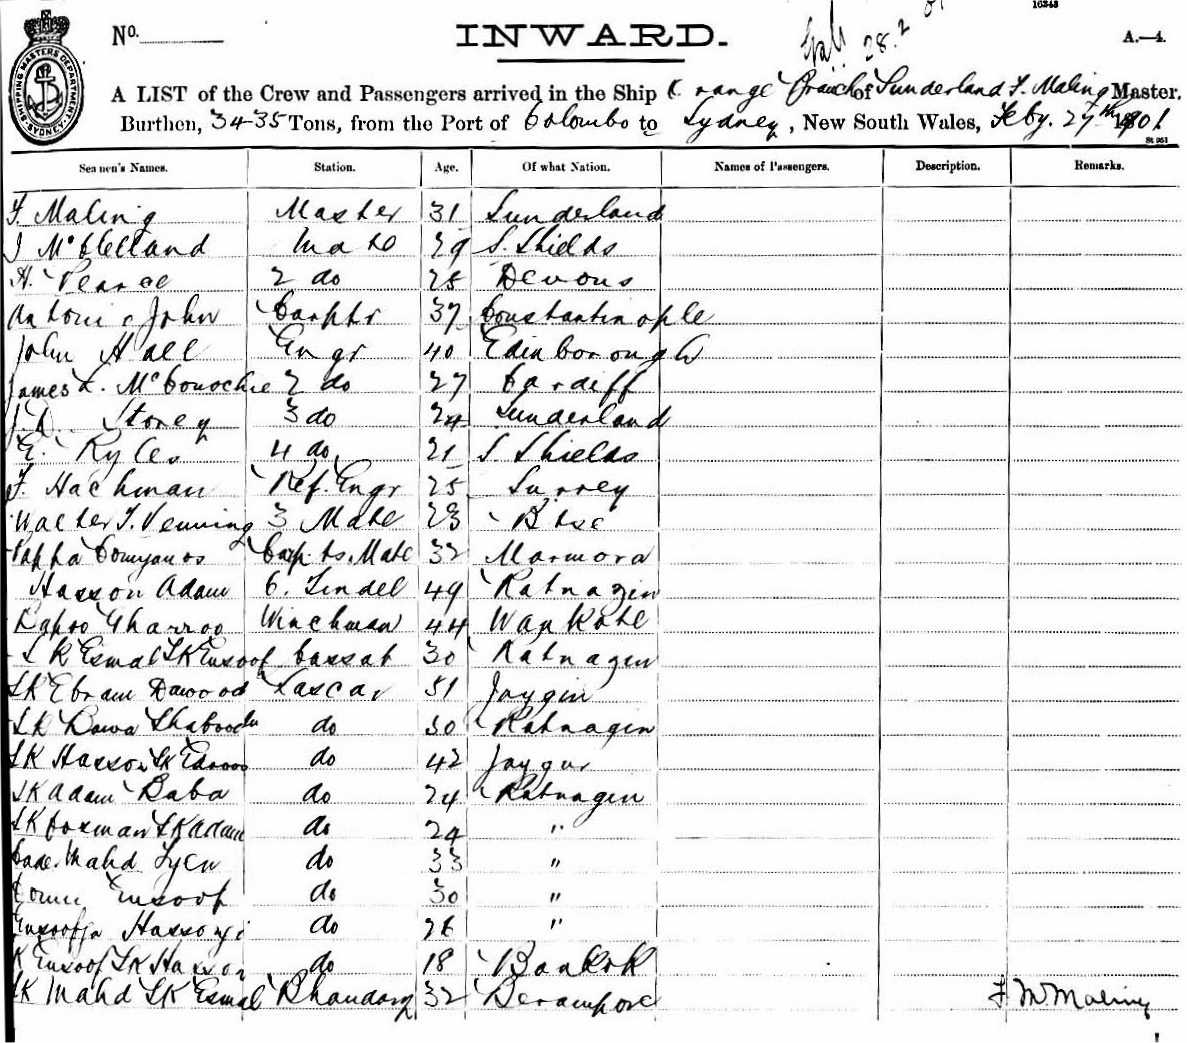 16343
No. INWARD. 28.2 A.—4.
SHIPPING MASTERS DEPARTMENT SYDNEY
A LIST of the Crew and Passengers arrived in the Ship Orange Branch of Sunderland F. Maling Master,
Burthen, 3435 Tons, from the Port of Colombo to Sydney, New South Wales, Feby. 27th 1901.
Seamen's Names. Station. Age. Of what Nation. Names of Passengers. Description. Remarks.
F. Maling Master 31 Sunderland
J McClelland Mate 29 S. Shields
H. Pearce 2 do 25 Devons
Antonio John Carptr 37 Constantinople
John Hall Engr 40 Edinborough
James L. McConochie 2 do 27 Cardiff
J. D. Storey 3 do 24 Sunderland
E. Ryles 4 do 21 S. Shields
F. Hachman Ref. Engr 25 Surrey
Walter T. Venning 3 Mate 23
Pappa Comyanos Carpts. Mate 32 Marmora
Hasson Adam C. Tindel 49 Ratnagin
Gharroo Winchman 44 Wankote
SK Esmal SK Ensoof Cassab 30 Ratnagin
SK Ebram Dawood Lascar 51 Jaygin
SK Bawa do 30 Ratnagin
SK Hasson SK do 42 Jaygur
SK Adam Baba do 24 Ratnagin
SK Oosman SK Adam do 24 "
Mahd do 33 "
Ensoof do 30 "
do 26 "
K Ensoof SK Hasson do 18 Bankok
SK Mahd SK Esmal Bhandary 32 Berampore
F M Maling